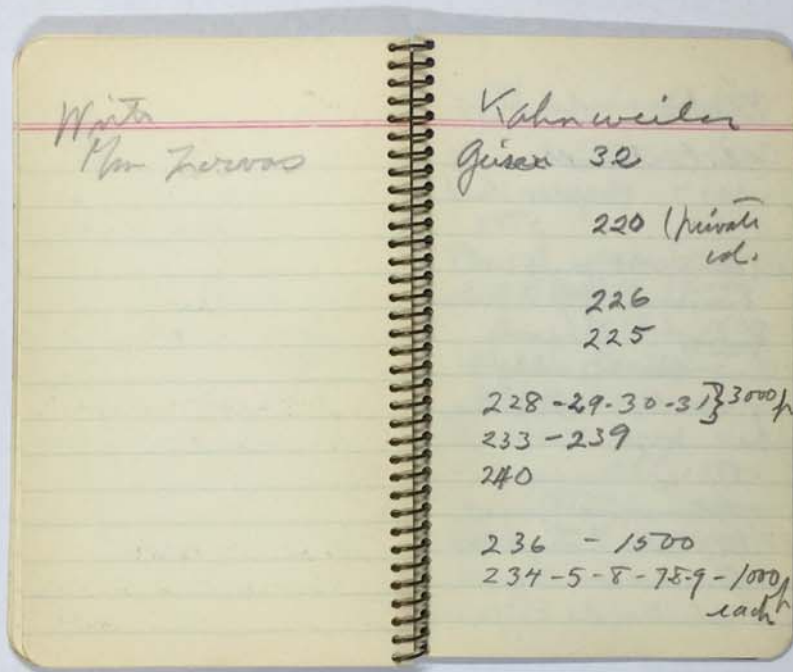 Write
Mm Zervos
Kahnweiler
Geiser 32
220 (private
col.
226
225
228-29-30-31} 3000 f
233-239
240
236 - 1500
234-5-8-78-9-1000 f
each